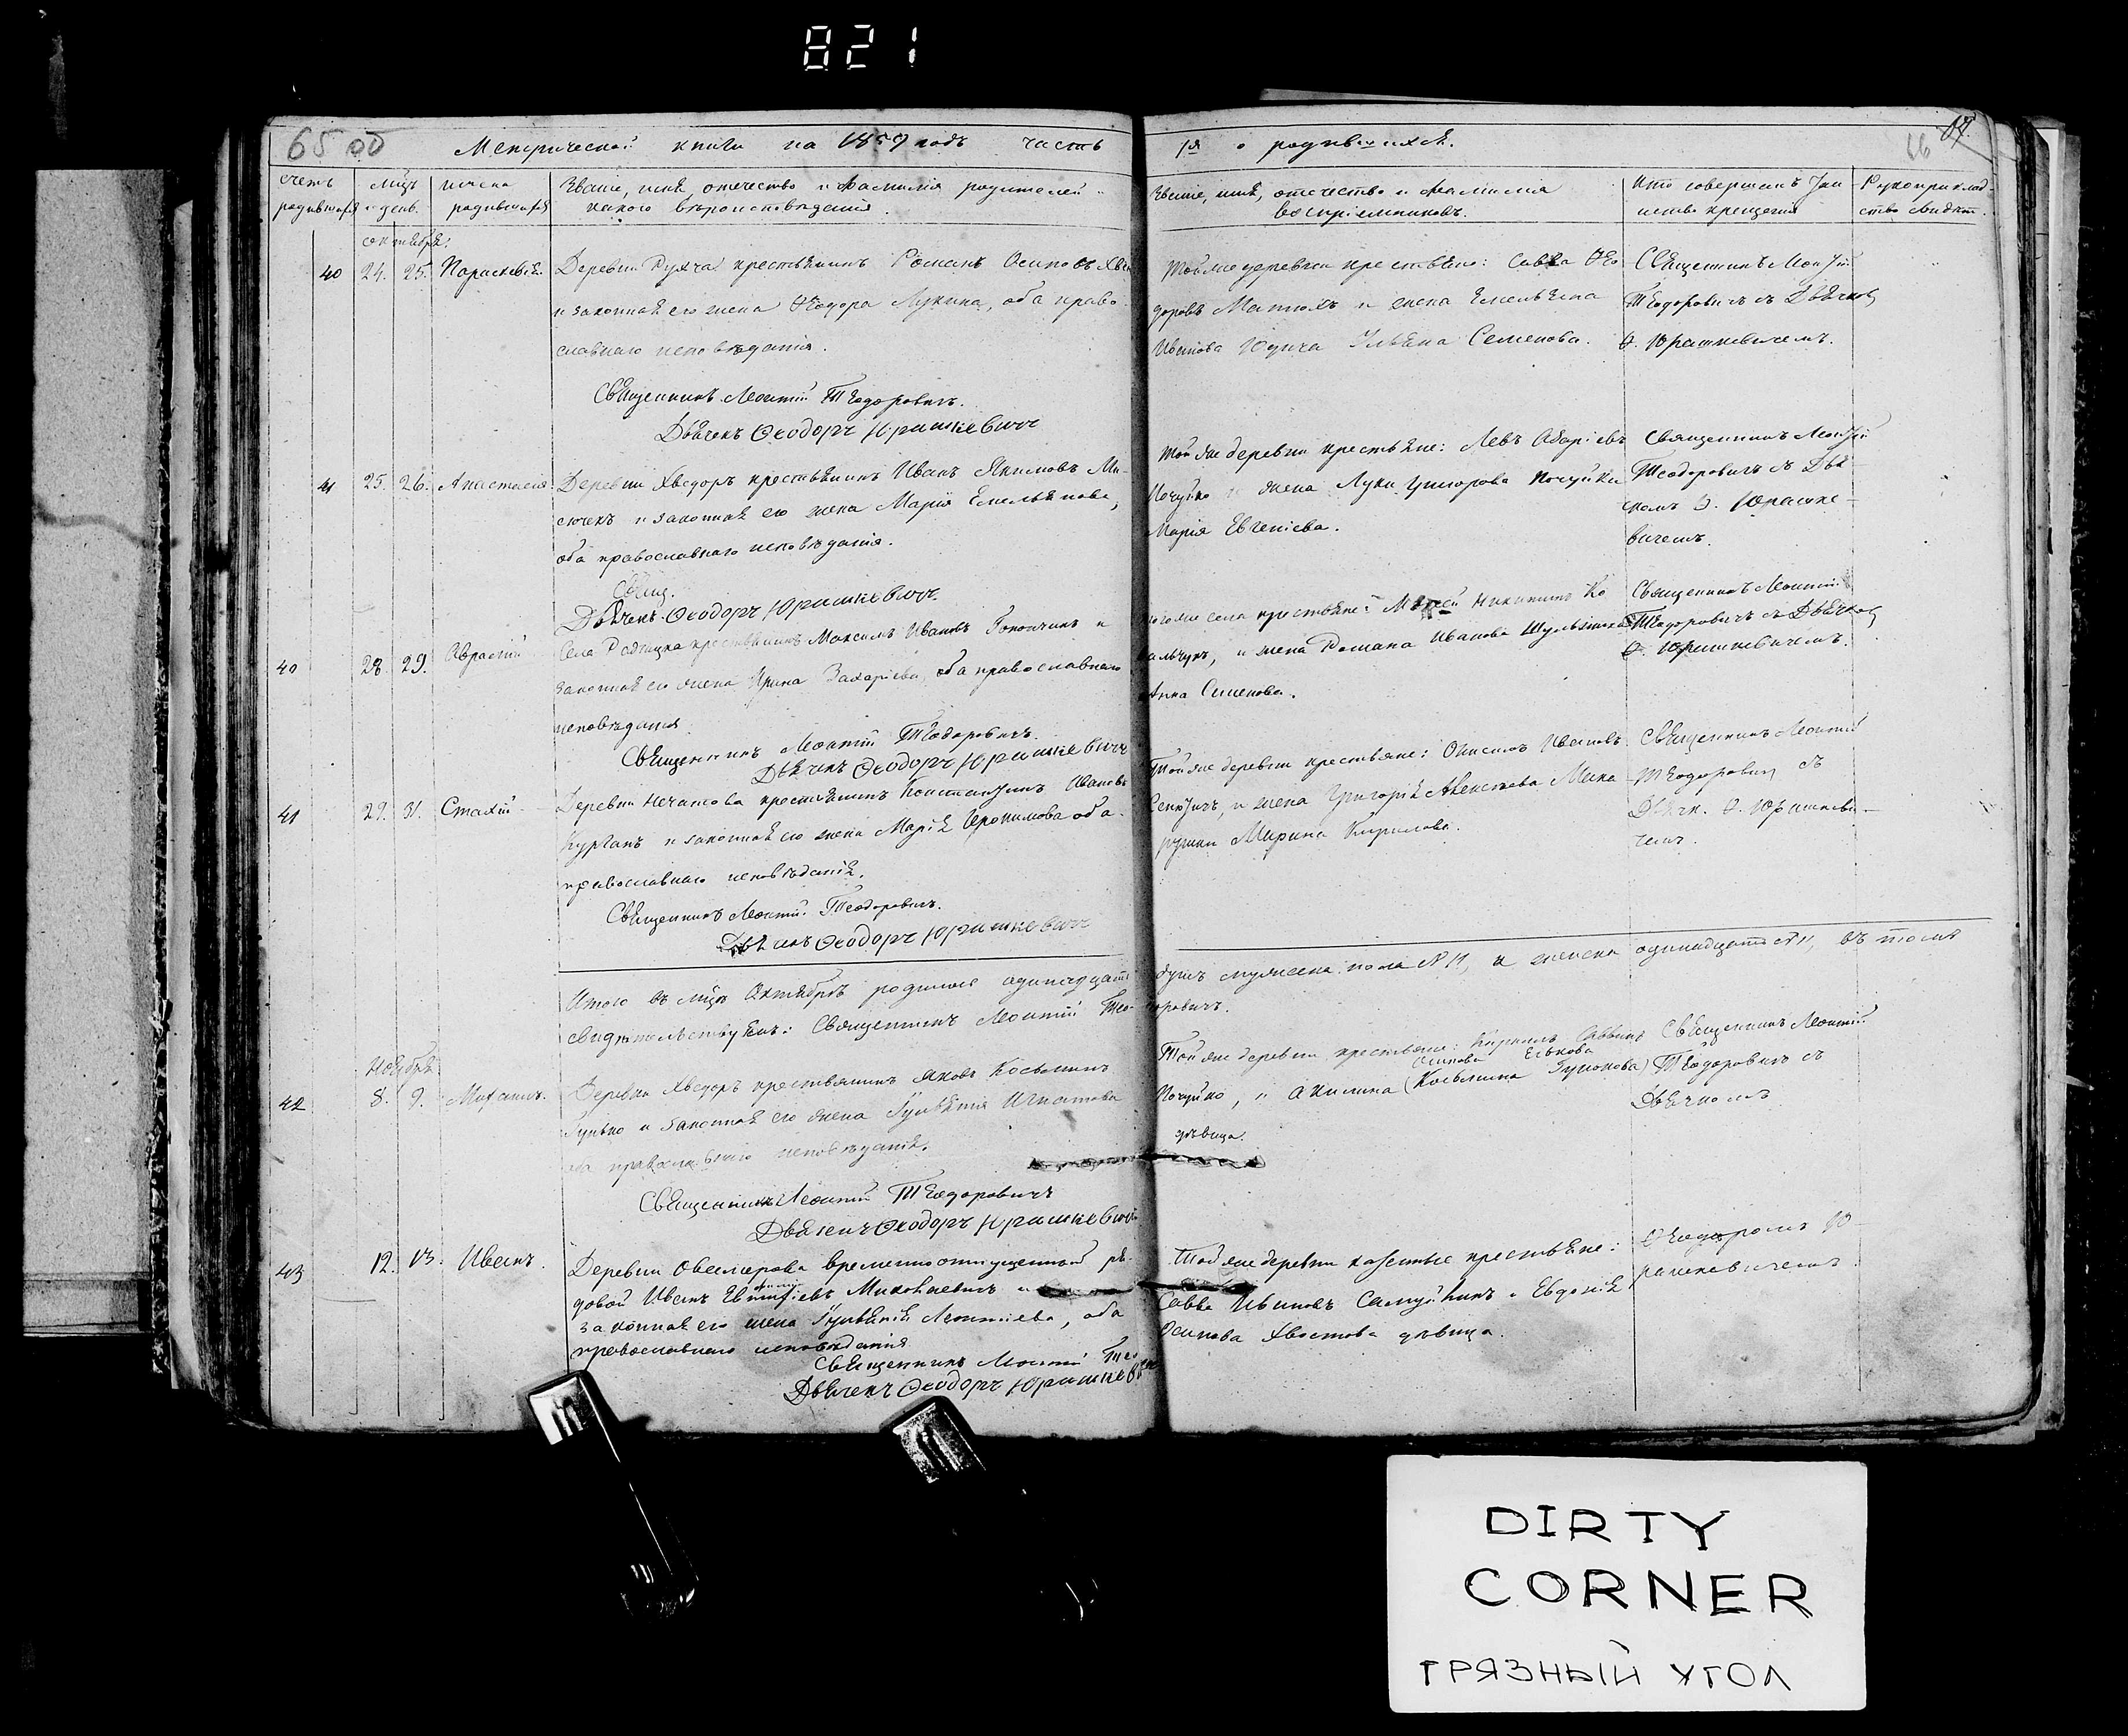 821
65 об
Метрической книги на 1859 годъ часть
1я о родившихся.
66
счетъ родившихся
мцъ и день.
имена родившихся
Званіе, имя, отечество и фамилія родителей и
какого вѣроисповѣданія.
Званіе, имя, отечество и фамилія
воспріемниковъ.
Кто совершалъ таи
нство крещенія
Рукоприклад
ство свидѣт.
октября.
40 24. 25. Параскевія.
Деревни крестьянинъ Романъ Осиповъ
и законная его жена Ѳеодора Лукина, оба право
славнаго исповѣданія.
Священникъ Леонтій Теодоровичъ.
Дьячекъ Ѳеодоръ Юрашкевичъ
Тойже деревни крестьяне: Савва Ѳео
доровъ и жена Емельяна
Иванова Юдича Ульяна Семенова.
Священникъ Леонтій
Теодоровичъ съ Дьячком
Ѳ. Юрашкевичемъ.
41 25. 26. Анастасія.
Деревни Хведоръ крестьянинъ Иванъ Якимовъ Ми-
сючекъ и законная его жена Марія Емельянова,
оба православнаго исповѣданія.
Свящ.
Дьячекъ Ѳеодоръ Юрашкевичъ
Той же деревни крестьяне: Левъ
Почуйко и жена Луки Григорова Почуйки
Марія Евгеніева.
Священникъ Леонтій
Теодоровичъ съ Дья
комъ Ѳ. Юрашке-
вичемъ.
40 28. 29.
Села крестьянинъ Максимъ Ивановъ Гопончикъ и
законная его жена Ирина Захаріева, оба православнаго
исповѣданія
Священникъ Леонтій Теодоровичъ.
Дьячекъ Ѳеодоръ Юрашкевичъ
тогоже села крестьяне: Никитинъ Ко
вальчукъ, и жена Романа Иванова
Анна Семенова.
Священникъ Леонтій
Теодоровичъ съ Дьячком
Ѳ. Юрашкевичемъ.
41 29. 31. Стахій
Деревни Нечатова крестьянинъ Константинъ Ивановъ
Курганъ и законная его жена Марія Іеронимова оба
православнаго исповѣданія.
Священникъ Леонтій Теодоровичъ.
Дьячекъ Ѳеодоръ Юрашкевичъ
Тойже деревни крестьяне: Онисимъ Ивановъ
и жена Григорія Алексѣева Мина
Марина Кирилова.
Священникъ Леонтій
Теодоровичъ съ
Дьячк. Ѳ. Юрашкеви-
чемъ.
Итого въ мцѣ Октябрѣ родилось одинадцать
душъ мужеска пола № 11, и женска одинадцать № 11, въ томъ
свидѣтельствуемъ: Священникъ Леонтій Тео-
доровичъ.
Ноября
42 8. 9. Михаилъ.
Деревни Хведоръ крестьянинъ Яковъ Косьминъ
Гунько и законная его жена Гликерія Игнатова
оба православнаго исповѣданія.
Священникъ Леонтій Теодоровичъ
Дьячекъ Ѳеодоръ Юрашкевичъ
Той же деревни крестьяне: Кирилъ Саввинъ
Осипова
Почуйко, и Акилина (Косьмина)
дѣвица.
Священникъ Леонтій
Теодоровичъ съ
Дьячкомъ
43 12. 13. Иванъ.
Деревни временноотпущенный ря-
довой Иванъ Михаевичъ и
законная его жена Гликерія Леонтіева, оба
православнаго исповѣданія
Священникъ Леонтій Тео
Дьячекъ Ѳеодоръ Юрашкевичъ
Той же деревни казенные крестьяне:
Савва Ивановъ Самуйликъ и Евдокія
Осипова Хвостова дѣвица.
Ѳеодоромъ Ю-
рашкевичемъ
DIRTY
CORNER
ГРЯЗНЫЙ УГОЛ